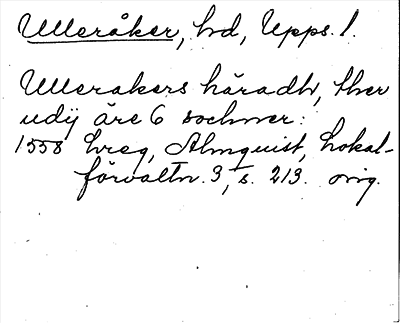 Ulleråker, hd, Upps. l.
Ullerakers häradh, ther
udij äre 6 sochner:
1558 hreg, Almquist, Lokal-
förvaltn. 3, s. 213. orig.